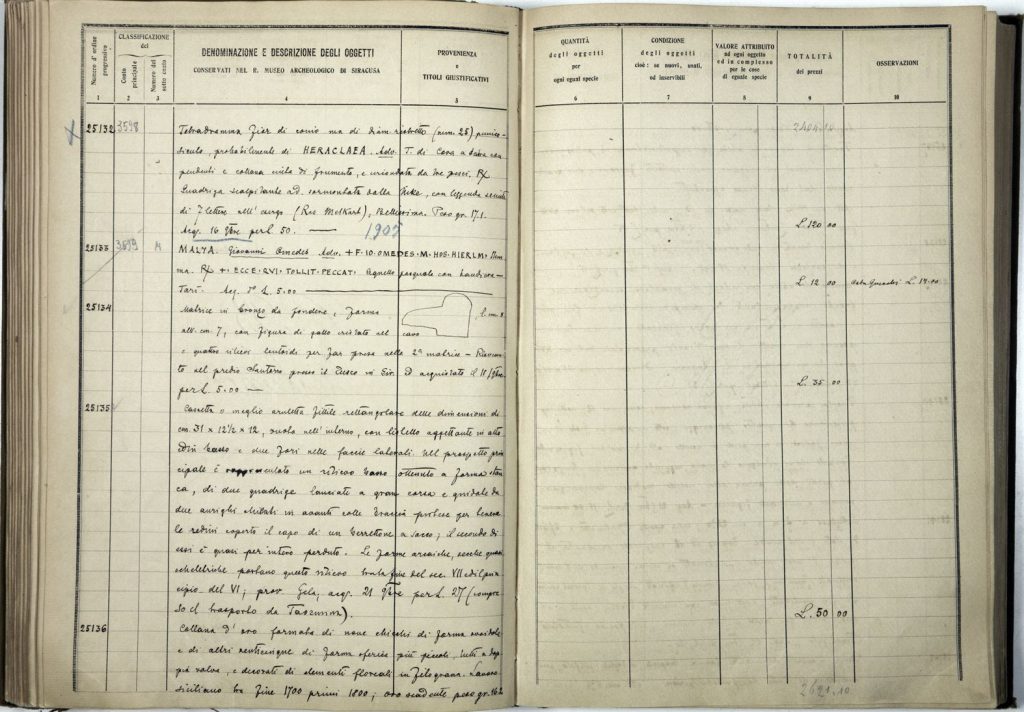 Numero d'ordine progressivo
CLASSIFICAZIONE
del
Conto principale
Numero del sotto conto
DENOMINAZIONE E DESCRIZIONE DEGLI OGGETTI
CONSERVATI NEL R. MUSEO ARCHEOLOGICO DI SIRACUSA
PROVENIENZA
e
TITOLI GIUSTIFICATIVI
1 2 3 4 5
25132 3598 Tetradramma fior di conio ma di diam. ristretto (mm. 25) punico-
siculo, probabilmente di HERACLAEA. Adv. T. di Cora a destra con
pendenti e collana cinta di frumento, e circondata da tre pesci. Rx
Quadriga scalpitante a d. sormontata dalla Nike, con leggenda
di 7 lettere nell' esergo (Ras Melkart), Bellissima. Peso gr. 17.1.
Acq. 16 9bre per L 50. — 1905
25133 3599 M MALTA. Giovanni Omedes Adv. + F · IO · OMEDES · M · HOS · HIERLM ·
ma. Rx + · ECCE · QVI · TOLLIT · PECCAT · Agnello pasquale con bandiera —
Tarì. Acq. L. 5.00 —
25134 Matrice in bronzo da fondere, forma
alt. cm. 7, con figura di gallo nel cavo
e quattro rilievi lentoidi per far presa nella 2ª matrice — Rinvenu-
to nel predio Santoro presso il in Sir. Ed acquistato il 11 9bre
per L 5.00 —
25135 Cassetta o meglio aruletta fittile rettangolare delle dimensioni di
cm. 31 x 12½ x 12, vuota nell' interno, con listello aggettante in alto
ed in basso e due fori nelle faccie laterali. Nel prospetto prin-
cipale è rappresentato un rilievo basso ottenuto a forma stan-
ca, di due quadrighe lanciate a gran corsa e guidate da
due aurighi chitati in avanti colle braccia protese per tenere
le redini coperto il capo di un berrettone a sacco; il secondo di
essi è quasi per intero perduto. Le forme arcaiche, secche quasi
scheletriche portano questo rilievo tra la fine del sec. VII ed il prin-
cipio del VI; prov. Gela, acq. 21 9bre per L. 27 (compre-
so il trasporto da Taranto).
25136 Collana d' oro formata di nove chicchi di forma ovoidale
e di altri venticinque di forma sferica più piccoli, tutti a dop-
pia valva, e decorati di elementi floreali in filograna. Lavoro
siciliano tra fine 1700 primi 1800; oro scadente peso gr.
QUANTITÀ
degli oggetti
per
ogni egual specie
CONDIZIONE
degli oggetti
cioè: se nuovi, usati,
od inservibili
VALORE ATTRIBUITO
ad ogni oggetto
ed in complesso
per le cose
di eguale specie
TOTALITÀ
dei prezzi
OSSERVAZIONI
6 7 8 9 10
2404.10
L. 120 00
L. 12 00 L. 17.00
L. 35 00
L. 50 00
2621.10